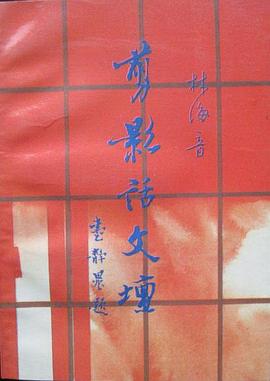 林海音
剪影話文壇
臺靜農題